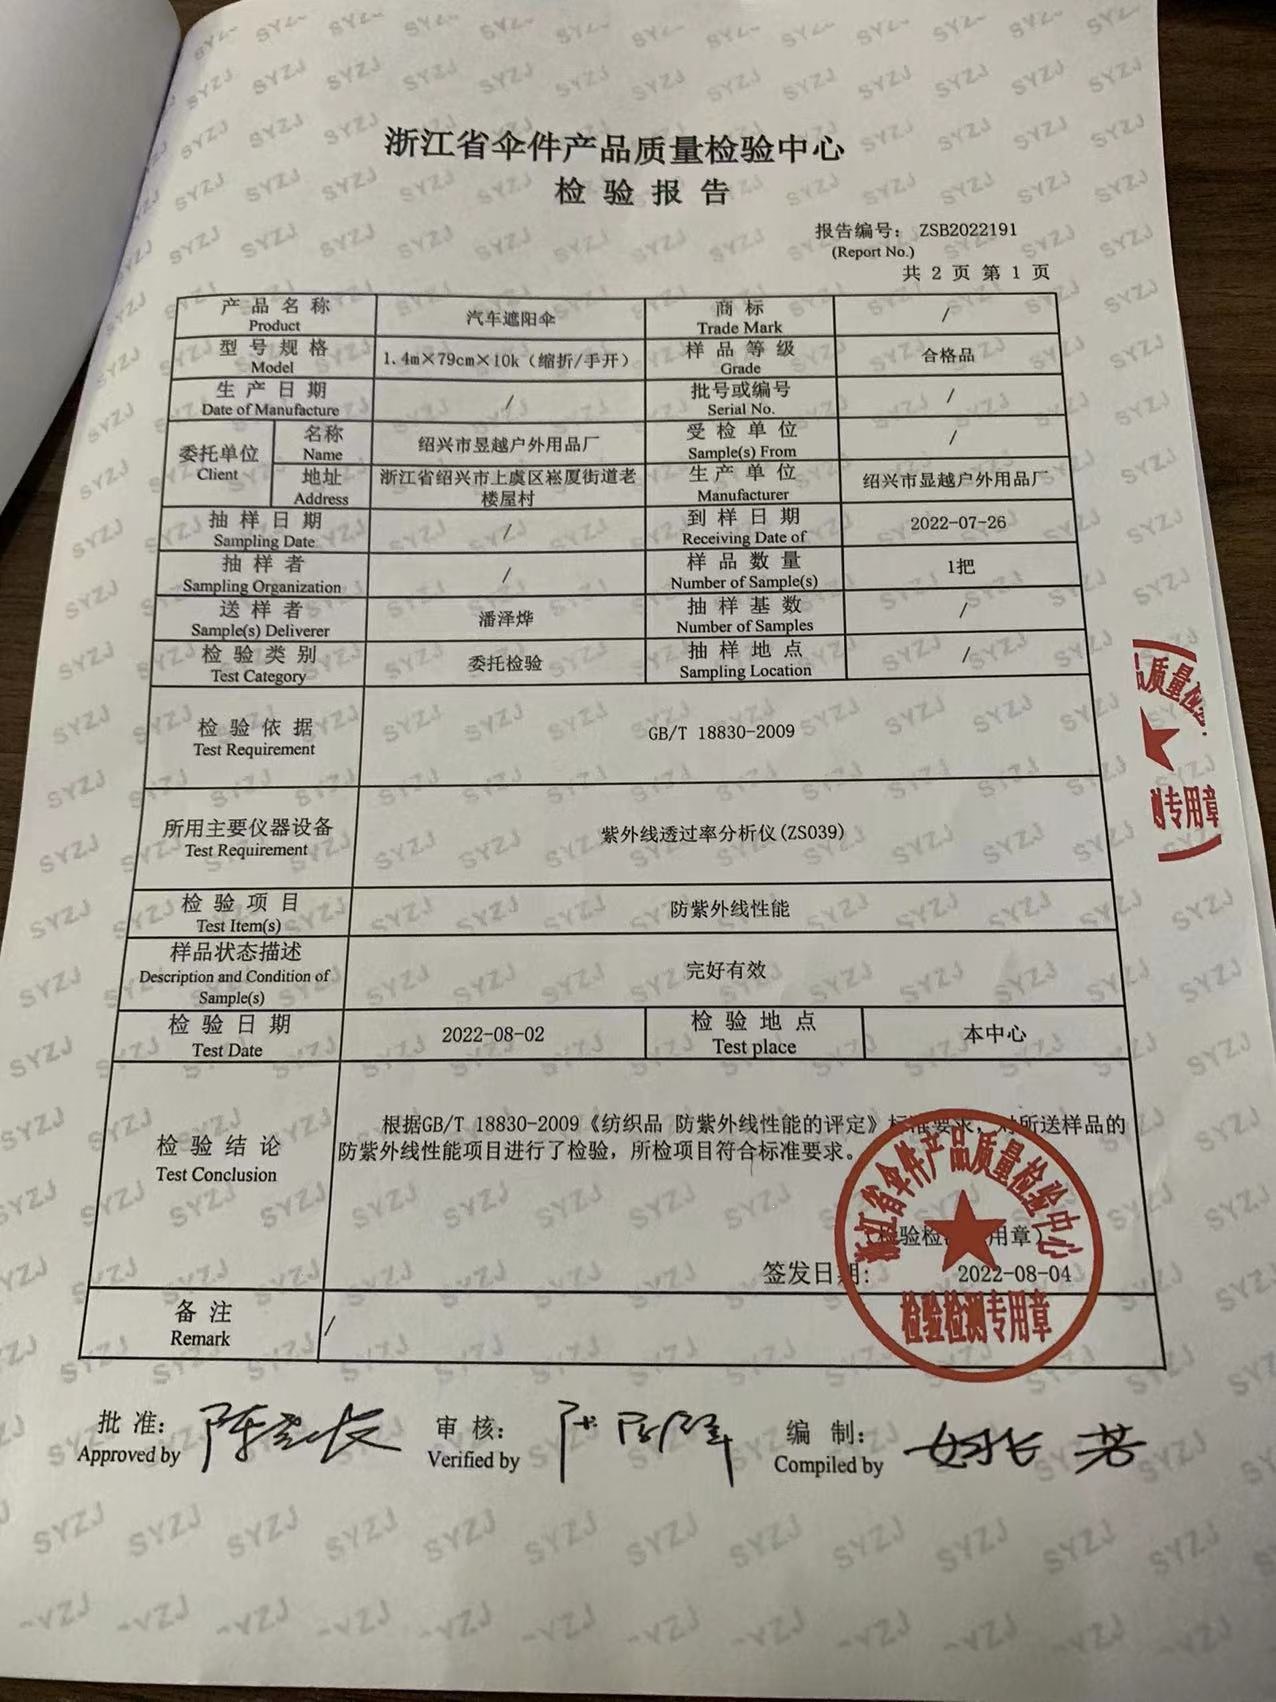 浙江省伞件产品质量检验中心
检 验 报 告
报告编号: ZSB2022191
(Report No.)
共 2 页 第 1 页
产品名称 汽车遮阳伞 商标 /
Product Trade Mark
型号规格 1.4m×79cm×10k（缩折/手开） 样品等级 合格品
Model Grade
生产日期 / 批号或编号 /
Date of Manufacture Serial No.
委托单位 名称 绍兴市昱越户外用品厂 受检单位 /
Client Name Sample(s) From
地址 浙江省绍兴市上虞区崧厦街道老 生产单位 绍兴市昱越户外用品厂
Address 楼屋村 Manufacturer
抽样日期 / 到样日期 2022-07-26
Sampling Date Receiving Date of
抽样者 / 样品数量 1把
Sampling Organization Number of Sample(s)
送样者 潘泽烨 抽样基数 /
Sample(s) Deliverer Number of Samples
检验类别 委托检验 抽样地点 /
Test Category Sampling Location
检验依据 GB/T 18830-2009
Test Requirement
所用主要仪器设备 紫外线透过率分析仪(ZS039)
Test Requirement
检验项目 防紫外线性能
Test Item(s)
样品状态描述 完好有效
Description and Condition of
Sample(s)
检验日期 2022-08-02 检验地点 本中心
Test Date Test place
检验结论
Test Conclusion
根据GB/T 18830-2009《纺织品 防紫外线性能的评定》标准要求，对所送样品的
防紫外线性能项目进行了检验，所检项目符合标准要求。
（检验检测专用章）
签发日期: 2022-08-04
浙江省伞件产品质量检验中心
检验检测专用章
备注 /
Remark
批 准: 审 核: 编 制:
Approved by Verified by Compiled by
品质量检验
测专用章
SYZJ